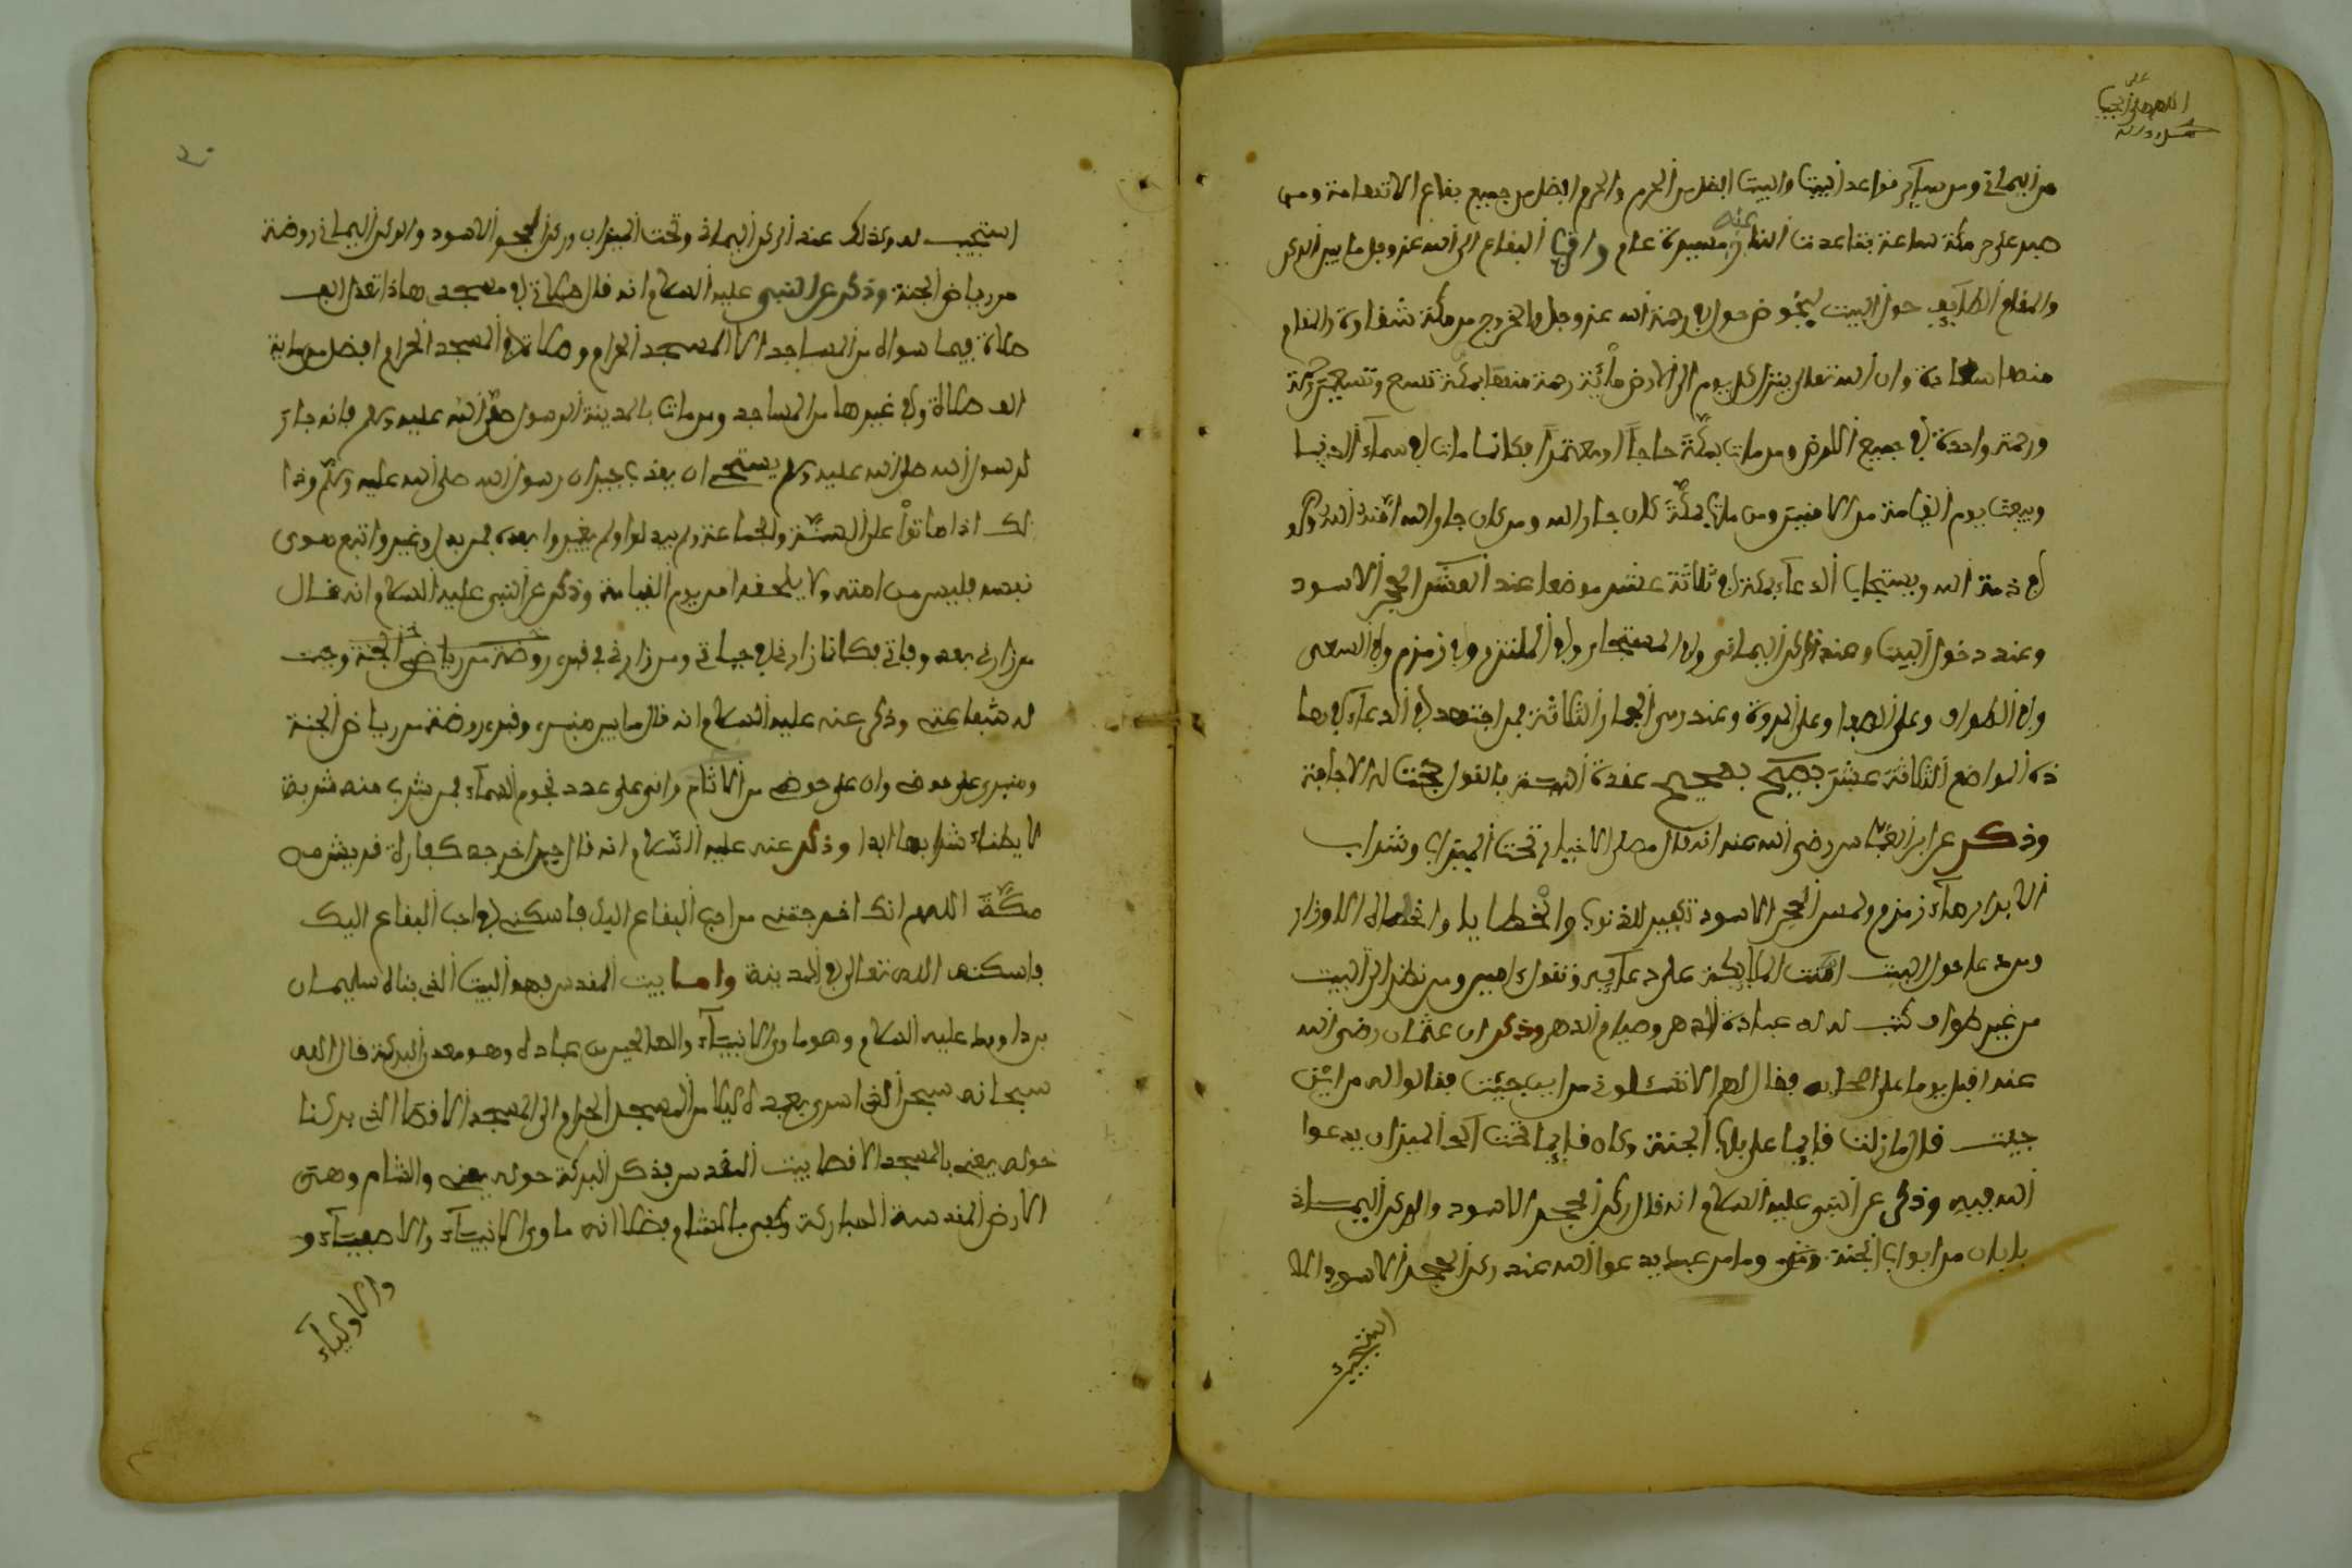 اللهم صل على
من اليماني ومن سآير قواعد البيت والبيت افضل من الحرم والحرم افضل من جميع بقاع الا تهامة ومن
صبر على حر مكة ساعة تباعدت النار عنه مسيرة عام واحب البقاع الى الله عز وجل ما بين الركن
والمقام الطآيف حول البيت يخوض حول في رحمة الله عز وجل والخروج من مكة شقاوة والمقام
منها سعادة وان الله تعالى ينزل كل يوم الى الارض مائة رحمة منها بمكة تسع وتسعين رحمة
ورحمة واحدة في جميع الارض ومن مات بمكة حاجا او معتمرا فكانما مات في سماء الدنيا
ويبعث يوم القيامة من الامنين ومن مات بمكة كان جار الله ومن كان جار الله امنه الله
في ذمة الله ويستجاب الدعآء بمكة في ثلاثة عشر موضعا عند الحجر الاسود
وعند دخول البيت وعند الركن اليماني وفي المستجار وفي الملتزم وفي زمزم وفي السعي
وفي الطواف وعلى الصفا وعلى المروة وعند رمي الجمار الثلاثة فمن اجتهد في الدعآء في ها
ذه المواضع الثلاثة عشر بصحيح عقدة بالقول له الاجابة
وذكر عن ابن العباس رضي الله عنه انه قال مصلى الاخيار تحت الميزاب وشراب
الابرار مآء زمزم ولمس الحجر الاسود تكفير للذنوب والخطايا الاوزار
ومن دعا حول البيت امنت الملآيكة على دعآيه وتقول امين ومن نظر الى البيت
من غير طواف كتب له عبادة الدهر وصيام الدهر وذكر ان عثمان رضي الله
عنه اقبل يوما على اصحابه فقال لهم الا تسئلوني من اين جئت فقالوا له من اين
جيت قال ما زلت قايما على باب الجنة وكان قايما تحت الميزاب يدعوا
الله فيه وذكر عن النبي عليه السلام انه قال ركن الحجر الاسود والركن اليماني
بابان من ابواب الجنة وما من عبد يدعوا الله عند ركن الحجر الاسود الا
استجيب
استجيب له وكذلك عند الركن اليماني وتحت الميزاب وركن الحجر الاسود والركن اليماني روضة
من رياض الجنة وذكر عن النبي عليه السلام انه قال صلاة في مسجدي هاذا تعدل الف
صلاة فيما سواه من المساجد الا المسجد الحرام وصلاة في المسجد الحرام افضل من ماية
الف صلاة في غيرها من المساجد ومن مات بالمدينة الرسول صلى الله عليه وسلم فانه جار
لرسول الله صلى الله عليه وسلم يستحي ان يعذب جيران رسول الله صلى الله عليه وسلم وذا
لك اذا ماتوا على السنة والجماعة ولم يبدلوا ولم يغيروا بعده فمن بدل وغير واتبع هوى
نفسه فليس من امته ولا يلحقه امر يوم القيامة وذكر عن النبي عليه السلام انه قال
من زارني بعد وفاتي فكانما زارني في حياتي ومن زارني في قبري روضة من رياض الجنة وجبت
له شفاعتي وذكر عنه عليه السلام انه قال ما بين منبري وقبري روضة من رياض الجنة
ومنبري على حوضي وان على حوضي من الاثام واني على عدد نجوم السمآء فمن شرب منه شربة
لا يظماء شرابها ابدا وذكر عنه عليه السلام انه قال حين اخرجه كفار قريش من
مكة اللهم انك اخرجتني من احب البقاع اليك فاسكني في احب البقاع اليك
فاسكنه الله تعالى في المدينة واما بيت المقدس فهو البيت الذي بناه سليمان
بن داوود عليه السلام وهو ماوى الانبيآء والصالحين من عباده وهو معدن البركة قال الله
سبحانه سبحن الذي اسرى بعبده ليلا من المسجد الحرام الى المسجد الاقصا الذي بركنا
حوله يعني بالمسجد الاقصا بيت المقدس فذكر البركة حوله يعني والشام وهي
الارض المقدسة المباركة وكفى بالشام فضلا انه ماوى الانبيآء والاصفيآء و
والاوليآء